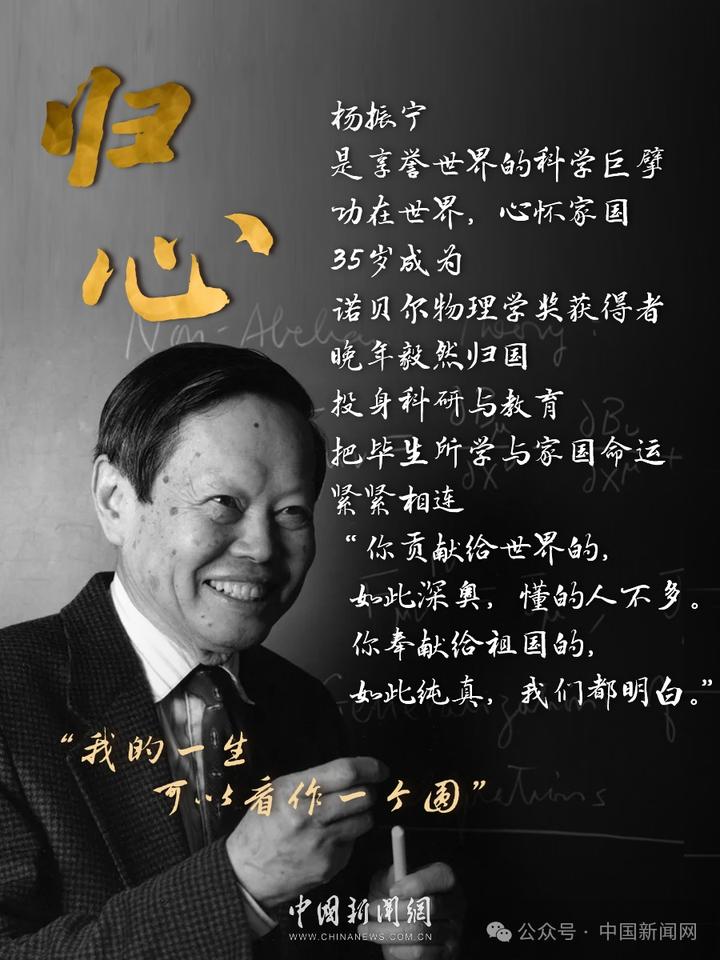 归
心
杨振宁
是享誉世界的科学巨擘
功在世界，心怀家国
35岁成为
诺贝尔物理学奖获得者
晚年毅然归国
投身科研与教育
把毕生所学与家国命运
紧紧相连
“你贡献给世界的，
如此深奥，懂的人不多。
你奉献给祖国的，
如此纯真，我们都明白。”
“我的一生
可以看作一个圆”
Non-Abelian
∂Bμ
∂xν
Generalization of
中國新聞網
WWW.CHINANEWS.COM.CN
公众号 · 中国新闻网